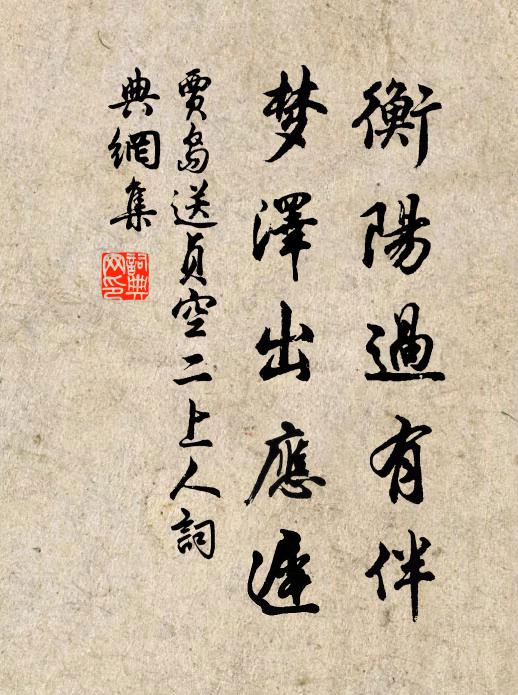 衡陽過有伴
梦澤出應遲
賈島送貞空二上人詞
典網集
詞典
网印